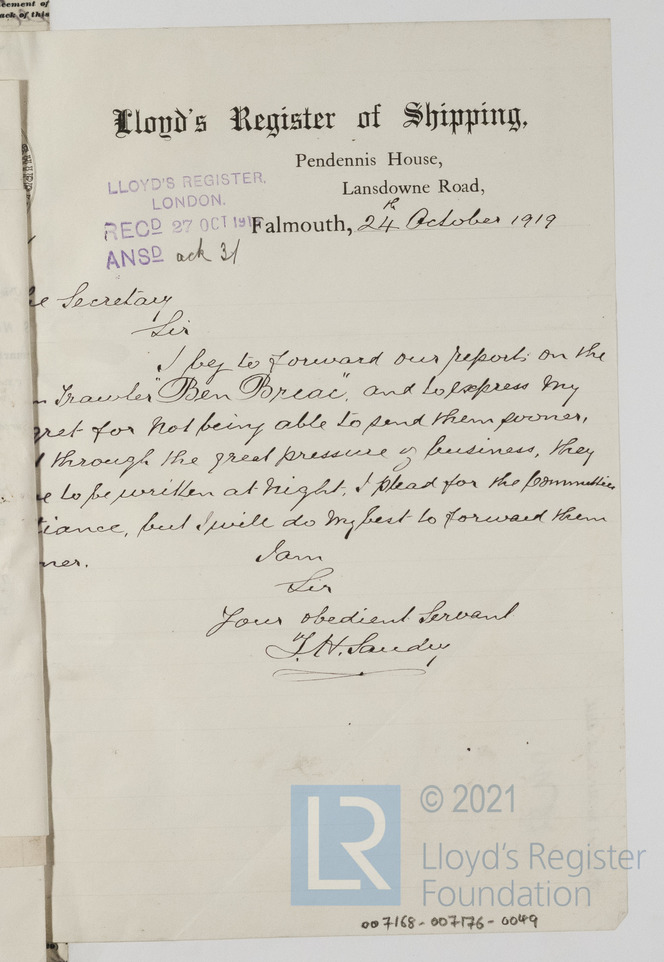 cement of
ack of this
Lloyd's Register of Shipping,
Pendennis House,
Lansdowne Road,
Falmouth, 24th October 1919
LLOYD'S REGISTER,
LONDON.
RECD 27 OCT 191
ANSD ack 31
e Secretary
Sir
I beg to forward our reports on the
Trawler "Ben Breac", and to express my
gret for not being able to send them sooner,
through the great pressure of business, they
e to be written at night. I plead for the Committees
iance, but I will do my best to forward them
ner.
I am
Sir
Your obedient Servant
T.H. Sandry
LR
© 2021
Lloyd's Register
Foundation
007168-007176-0049